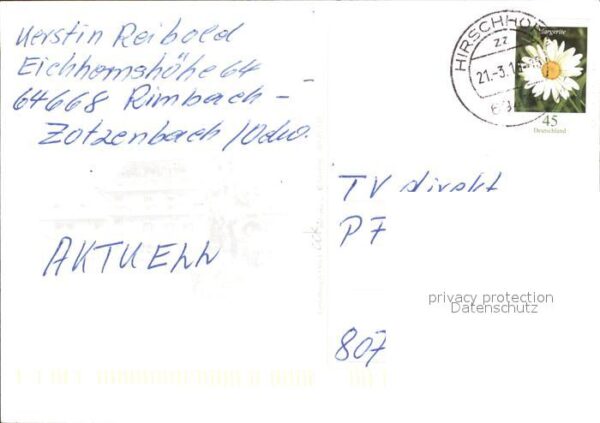 Kerstin Reibold
Eichhornshöhe 64
64668 Rimbach -
Zotzenbach /Odw.
AKTUELL
HIRSCHHO
zz
21.-3.1
69
Margerite
45
Deutschland
TV direkt
PF
807
privacy protection
Datenschutz